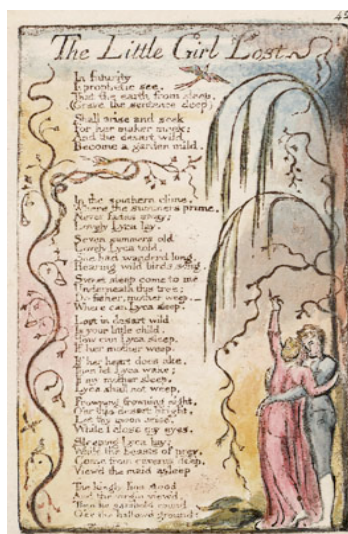 The Little Girl Lost
In futurity
I prophetic see,
That the earth from sleep,
(Grave the sentence deep)
Shall arise and seek
For her maker meek:
And the desart wild
Become a garden mild.
In the southern clime,
Where the summers prime,
Never fades away;
Lovely Lyca lay.
Seven summers old
Lovely Lyca told,
She had wanderd long,
Hearing wild birds song.
Sweet sleep come to me
Underneath this tree;
Do father, mother weep.—
Where can Lyca sleep.
Lost in desart wild
Is your little child.
How can Lyca sleep,
If her mother weep.
If her heart does ake,
Then let Lyca wake;
If my mother sleep,
Lyca shall not weep.
Frowning frowning night,
O'er this desart bright,
Let thy moon arise,
While I close my eyes.
Sleeping Lyca lay;
While the beasts of prey,
Come from caverns deep,
View'd the maid asleep
The kingly lion stood
And the virgin view'd,
Then he gambold round
O'er the hallowd ground: